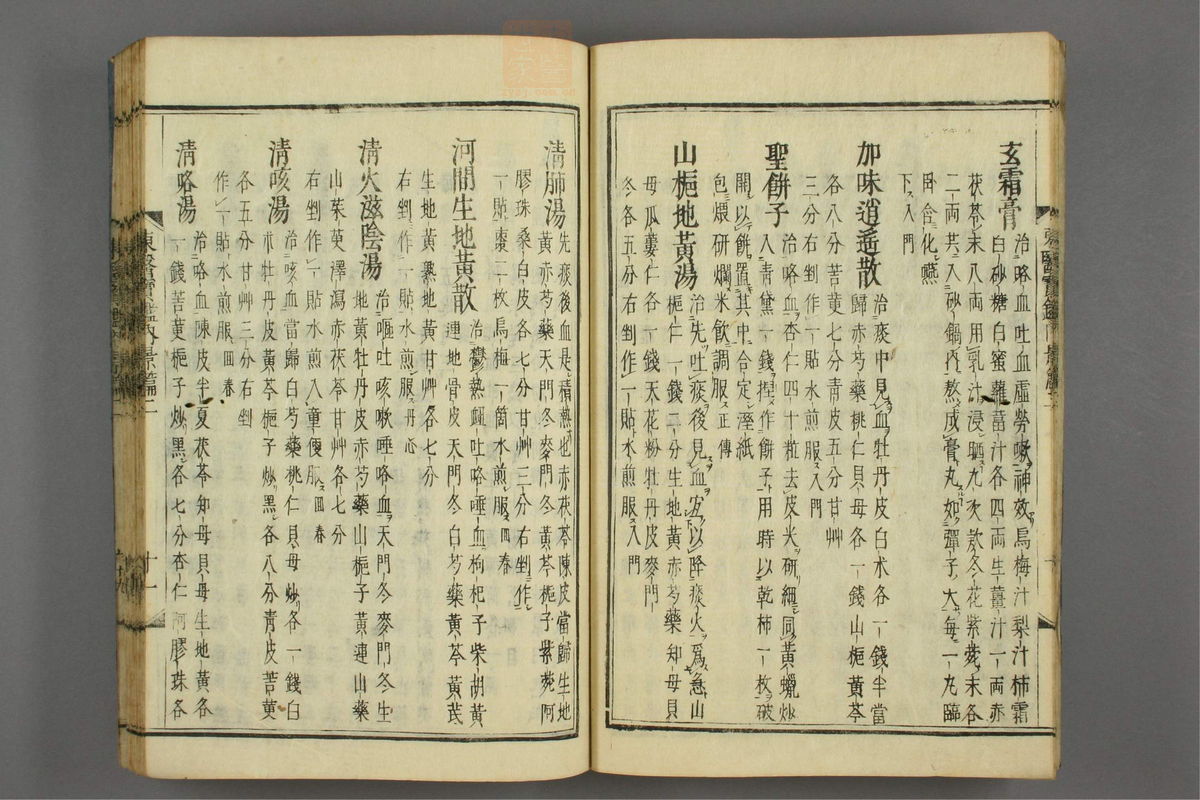 玄霜膏 治咯血吐血虛勞嗽神效烏梅汁梨汁柿霜
白砂糖白蜜蘿蔔汁各四兩生薑汁一兩赤
茯苓末八兩用乳汁浸晒九次款冬花紫菀末各
二兩共入砂鍋內熬成膏丸如彈子大每一丸臨
臥含化嚥
下入門
加味逍遙散 治痰中見血牡丹皮白朮各一錢半當
歸赤芍藥桃仁貝母各一錢山梔黃芩
各八分苦莄七分青皮五分甘艸
三分右剉作一貼水煎服入門
聖餅子 治咯血杏仁四十粒去皮尖研細同黃蠟炒
入青黛一錢捏作餅子用時以乾柿一枚破
開以餅置其中合定溼紙
包煨研爛米飲調服正傳
山梔地黃湯 治先吐痰後見血宜以降痰火爲急山
梔仁一錢二分生地黃赤芍藥知母貝
母瓜蔞仁各一錢天花粉牡丹皮麥門
冬各五分右剉作一貼水煎服入門
清肺湯 先痰後血是積熱也赤茯苓陳皮當歸生地
黃赤芍藥天門冬麥門冬黃芩梔子紫菀阿
膠珠桑白皮各七分甘艸三分右剉作
一貼棗二枚烏梅一箇水煎服回春
河間生地黃散 治鬱熱衄吐咯唾血枸杞子柴胡黃
連地骨皮天門冬白芍藥黃芩黃芪
生地黃熟地黃甘艸各七分
右剉作一貼水煎服丹心
清火滋陰湯 治嘔吐咳嗽唾咯血天門冬麥門冬生
地黃牡丹皮赤芍藥山梔子黃連山藥
山茱萸澤瀉赤茯苓甘艸各七分
右剉作一貼水煎入童便服回春
清咳湯 治咳血當歸白芍藥桃仁貝母炒各一錢白
朮牡丹皮黃芩梔子炒黑各八分青皮苦莄
各五分甘艸三分右剉
作一貼水煎服回春
清咯湯 治咯血陳皮半夏茯苓知母貝母生地黃各
一錢苦莄梔子炒黑各七分杏仁阿膠珠各
東醫寶鑑內景篇二
十一